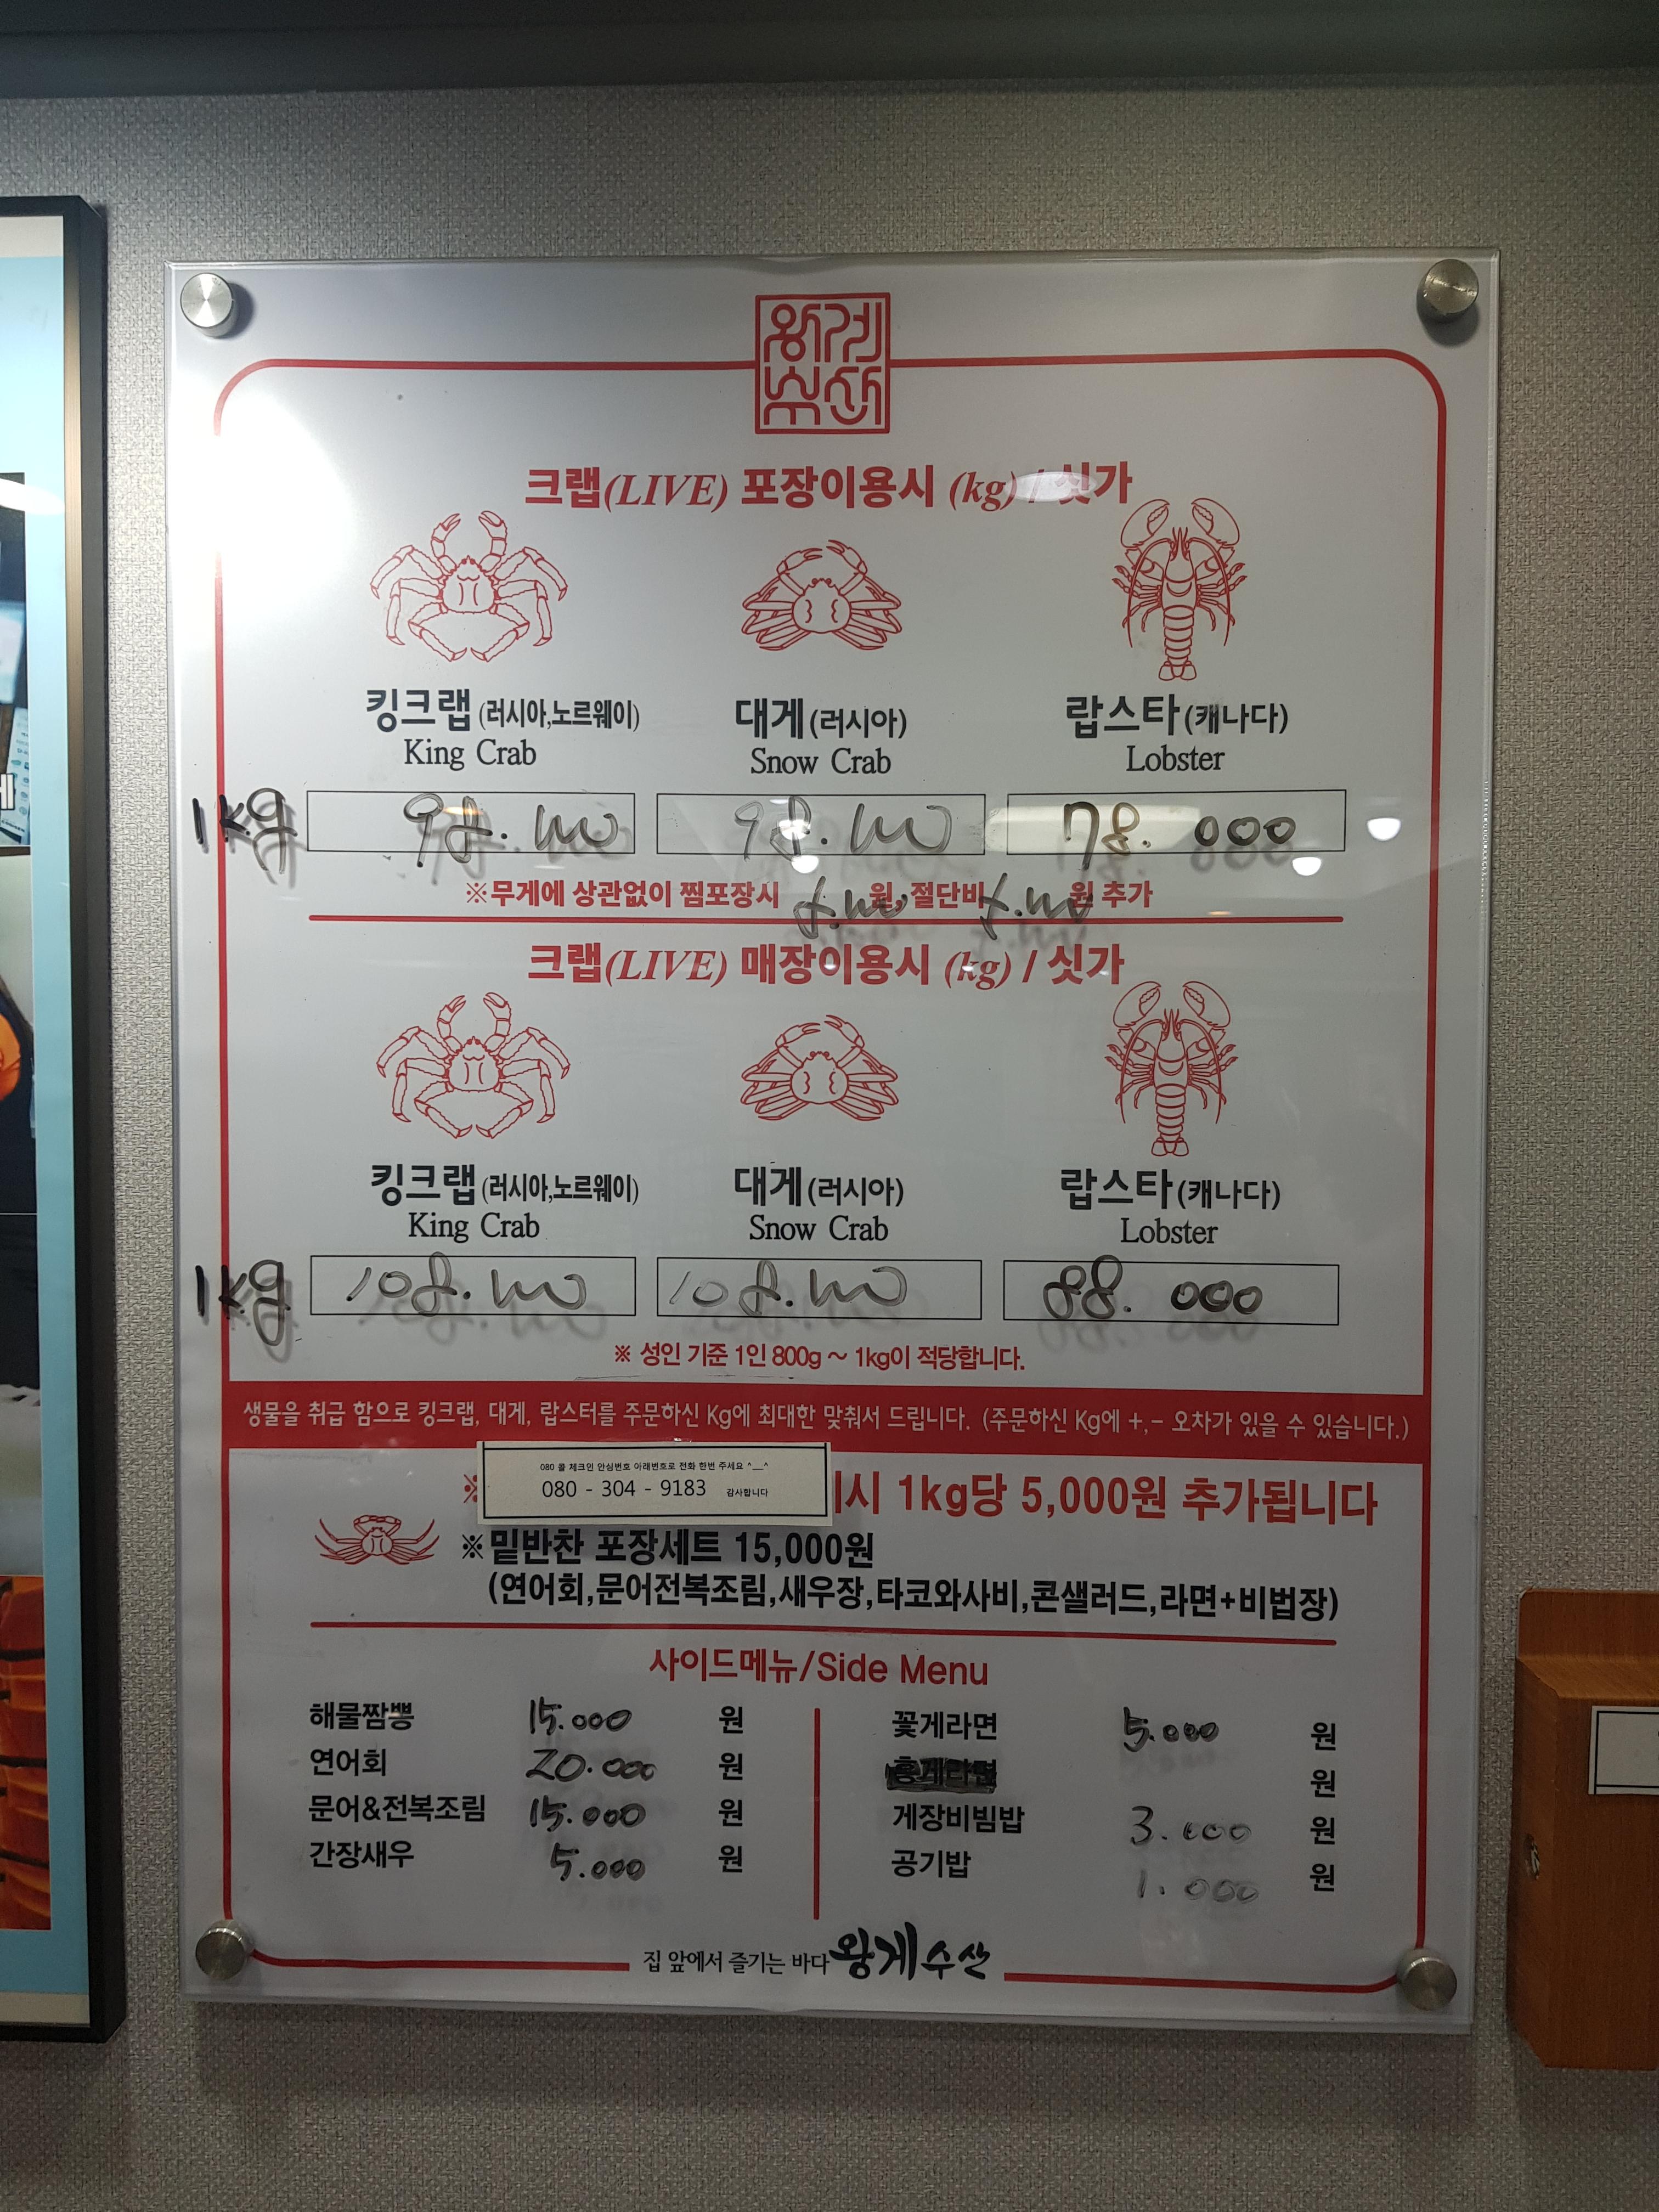 왕게
수산
크랩(LIVE) 포장이용시 (kg) / 싯가
킹크랩(러시아,노르웨이) 대게(러시아) 랍스타(캐나다)
King Crab Snow Crab Lobster
1kg 98.000 98.000 78.000
※무게에 상관없이 찜포장시 원, 절단비 원 추가
크랩(LIVE) 매장이용시 (kg) / 싯가
킹크랩(러시아,노르웨이) 대게(러시아) 랍스타(캐나다)
King Crab Snow Crab Lobster
1kg 108.000 108.000 88.000
※ 성인 기준 1인 800g ~ 1kg이 적당합니다.
생물을 취급 함으로 킹크랩, 대게, 랍스터를 주문하신 Kg에 최대한 맞춰서 드립니다. (주문하신 Kg에 +,- 오차가 있을 수 있습니다.)
080 콜 체크인 안심번호 아래번호로 전화 한번 주세요 ^__^
080 - 304 - 9183 감사합니다
※ 시 1kg당 5,000원 추가됩니다
※밑반찬 포장세트 15,000원
(연어회,문어전복조림,새우장,타코와사비,콘샐러드,라면+비법장)
사이드메뉴/Side Menu
해물짬뽕 15.000 원
연어회 20.000 원
문어&전복조림 15.000 원
간장새우 5.000 원
꽃게라면 5.000 원
원
게장비빔밥 3.000 원
공기밥 1.000 원
집 앞에서 즐기는 바다 왕게수산